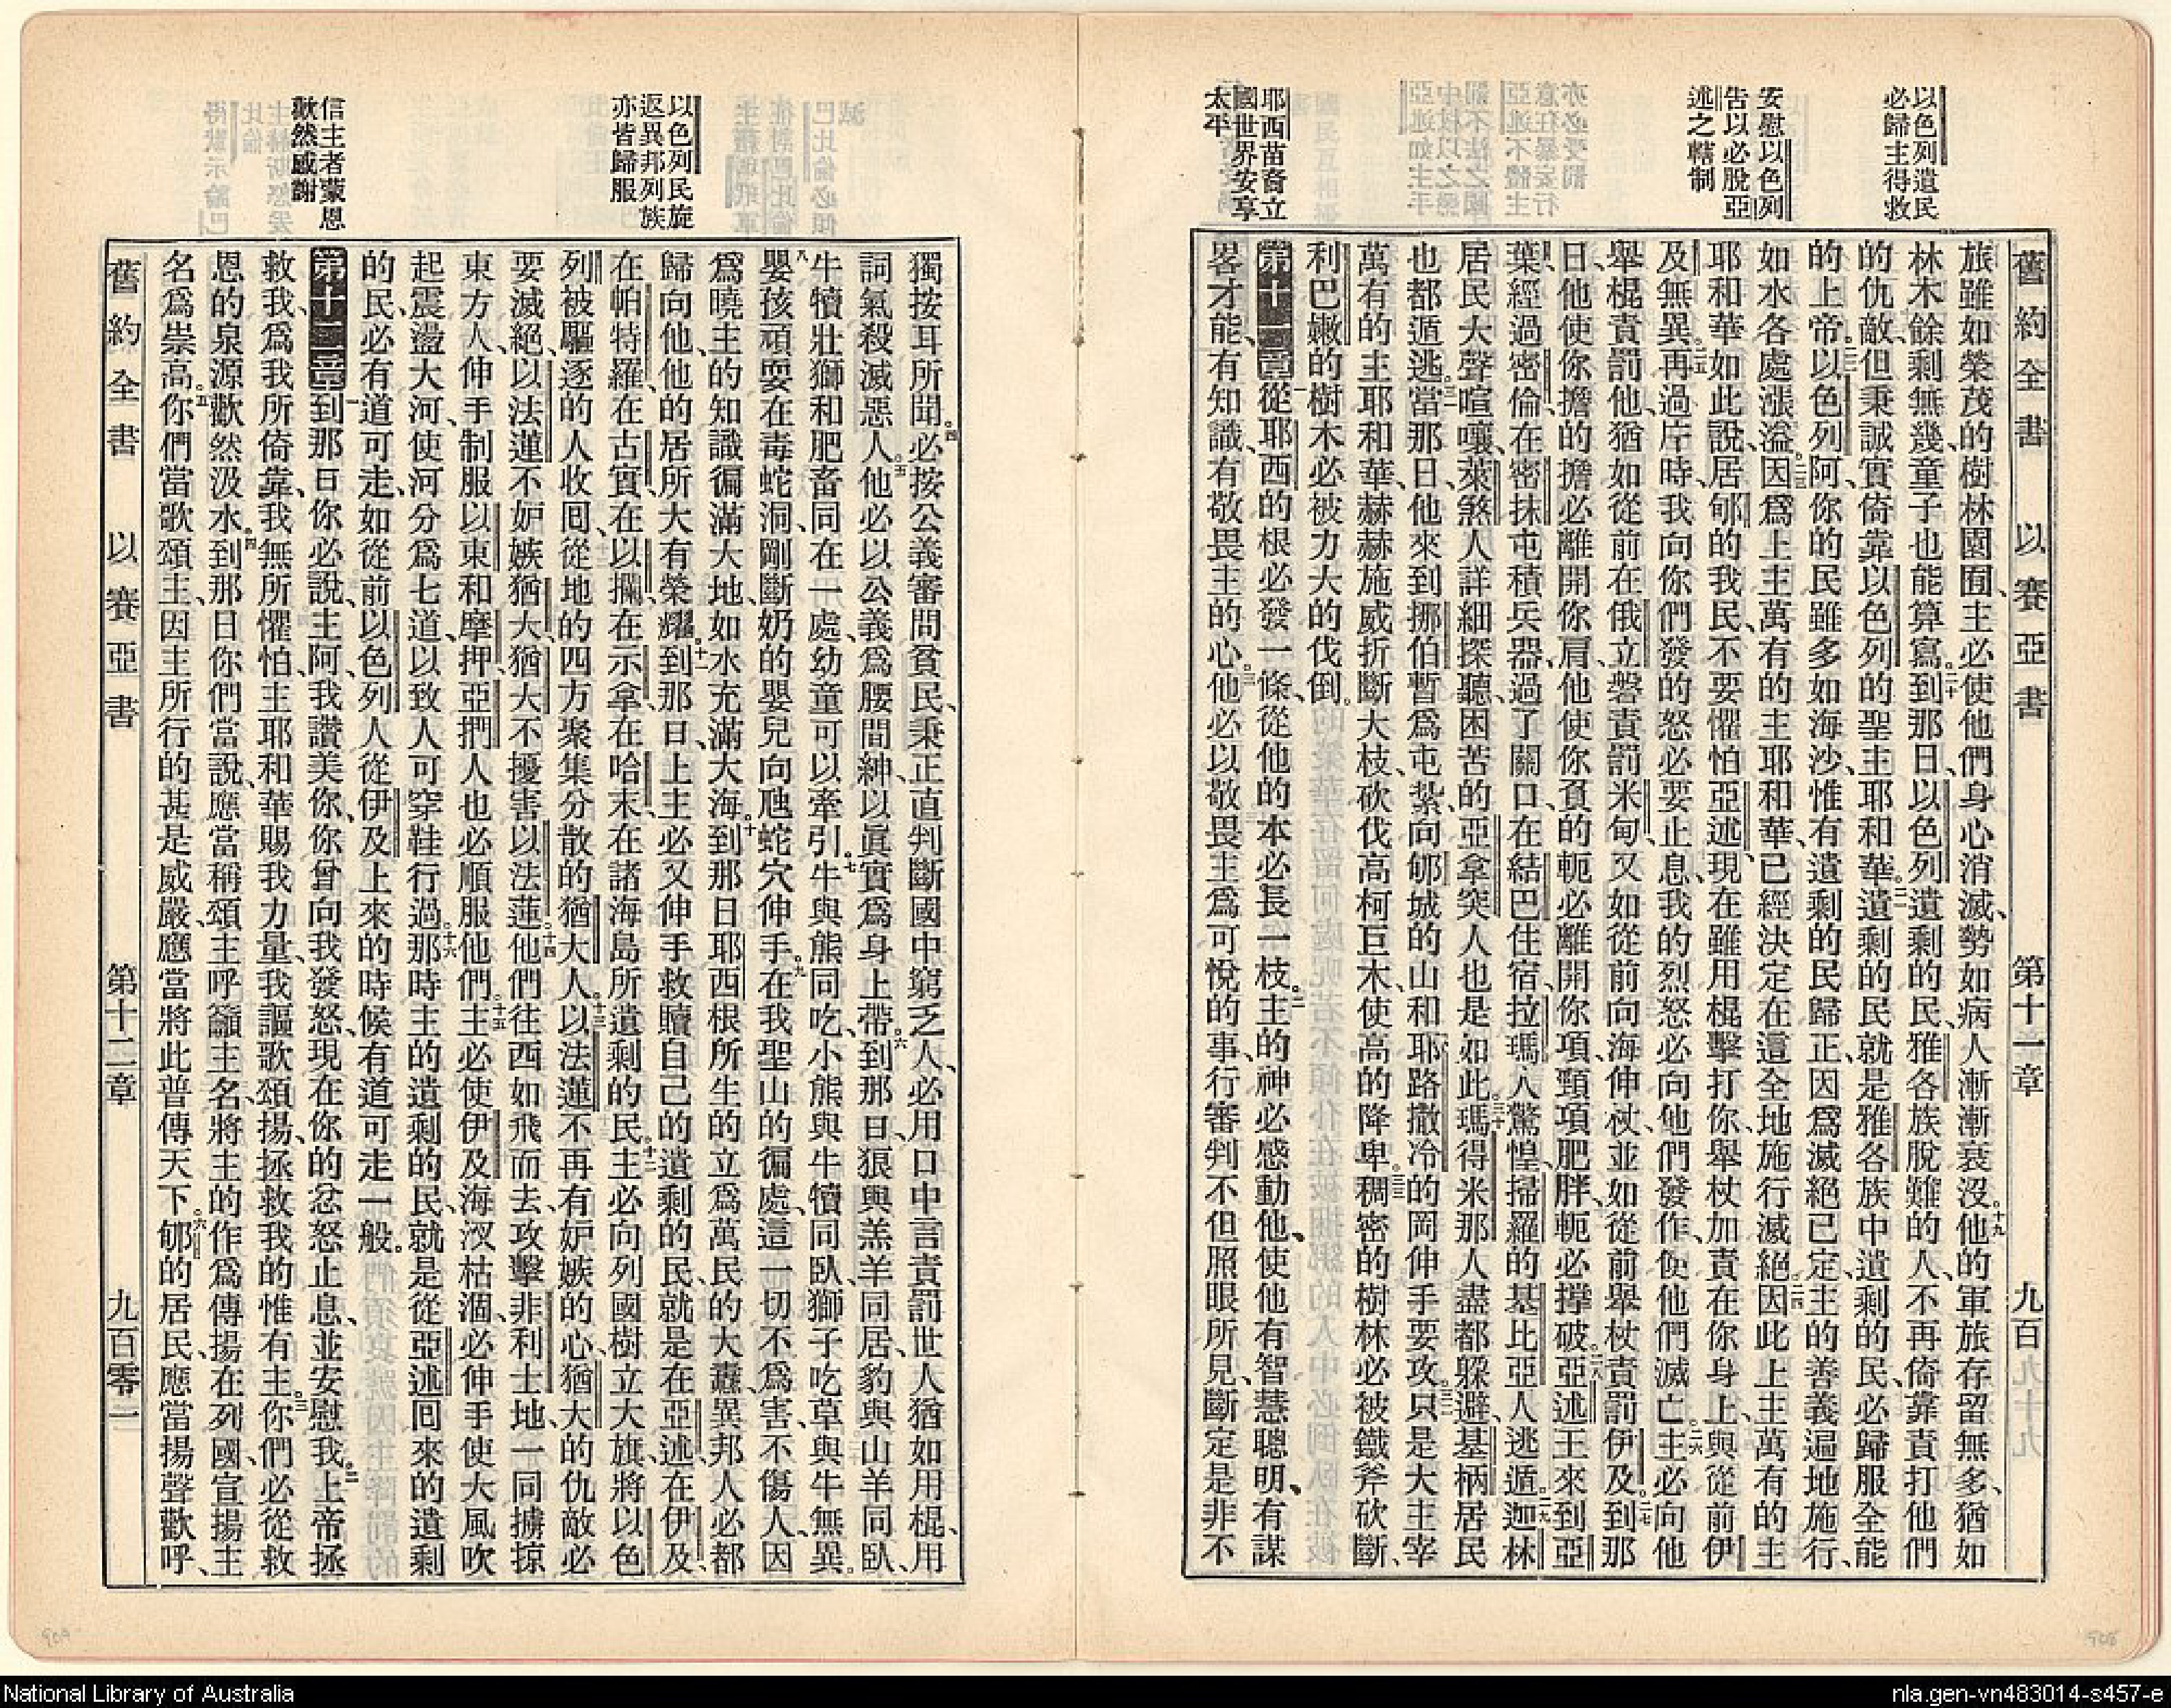 以色列遺民
必歸主得救
安慰以色列
告以必脫亞
述之轄制
耶西苗裔立
國世界安享
太平
舊約全書 以賽亞書 第十一章 九百
旅雖如榮茂的樹林園囿、主必使他們身心消滅、勢如病人漸漸衰沒。十九他的軍旅存留無多、猶如
林木餘剩無幾、童子也能算寫。二十到那日、以色列遺剩的民、雅各族脫難的人、不再倚靠責打他們
的仇敵、但秉誠實倚靠以色列的聖主耶和華。二一遺剩的民、就是雅各族中遺剩的民、必歸服全能
的上帝。二二以色列阿、你的民雖多如海沙、惟有遺剩的民歸正、因為滅絕已定、主的善義遍地施行、
如水各處漲溢。二三因為上主萬有的主耶和華、已經決定在這全地施行滅絕。二四因此上主萬有的主
耶和華如此說、居郇的我民、不要懼怕亞述、現在雖用棍擊打你、舉杖加責在你身上、與從前伊
及無異。二五再過片時、我向你們發的怒必要止息、我的烈怒必向他們發作、使他們滅亡。二六主必向他
舉棍責罰他、猶如從前在俄立磐責罰米甸、又如從前向海伸杖、並如從前舉杖責罰伊及。二七到那
日、他使你擔的擔必離開你肩、他使你負的軛必離開你項、頸項肥胖、軛必撐破。二八亞述王來到亞
葉、經過密倫、在密抹屯積兵器、過了關口、在結巴住宿、拉瑪人驚惶、掃羅的基比亞人逃遁。二九迦林
居民大聲喧嚷、萊煞人詳細探聽、困苦的亞拿突人也是如此。三十瑪得米那人盡都躲避、基柄居民
也都遁逃。三一當那日、他來到挪伯暫為屯紮、向郇城的山和耶路撒冷的岡伸手要攻。三二只是大主宰
萬有的主耶和華、赫赫施威折斷大枝、砍伐高柯巨木、使高的降卑。三三稠密的樹林必被鐵斧砍斷、
利巴嫩的樹木必被力大的伐倒。
第十一章一從耶西的根必發一條、從他的本必長一枝。二主的神必感動他、使他有智慧聰明、有謀
畧才能、有知識、有敬畏主的心。三他必以敬畏主為可悅的事、行審判不但照眼所見、斷定是非不
以色列民旋
返異邦列族
亦皆歸服
信主者蒙恩
歡然感謝
獨按耳所聞。四必按公義審問貧民、秉正直判斷國中窮乏人、必用口中言責罰世人猶如用棍、用
詞氣殺滅惡人。五他必以公義為腰間紳、以眞實為身上帶。六到那日、狼與羔羊同居、豹與山羊同臥、
牛犢壯獅和肥畜同在一處、幼童可以牽引。七牛與熊同吃、小熊與牛犢同臥、獅子吃草與牛無異。
八嬰孩頑耍在毒蛇洞、剛斷奶的嬰兒向虺蛇穴伸手。九在我聖山的徧處、這一切不為害、不傷人、因
為曉主的知識徧滿大地、如水充滿大海。十到那日耶西根所生的立為萬民的大纛、異邦人必都
歸向他、他的居所大有榮耀。十一到那日、上主必又伸手救贖自己的遺剩的民、就是在亞述、在伊及、
在帕特羅、在古實、在以攔、在示拿、在哈末、在諸海島所遺剩的民。十二主必向列國樹立大旗、將以色
列被驅逐的人收囘、從地的四方聚集分散的猶大人。十三以法蓮不再有妒嫉的心、猶大的仇敵必
要滅絕、以法蓮不妒嫉猶大、猶大不擾害以法蓮。十四他們往西如飛而去、攻擊非利士地、一同擄掠
東方人、伸手制服以東和摩押、亞捫人也必順服他們。十五主必使伊及海汊枯涸、必伸手使大風吹
起、震盪大河、使河分為七道、以致人可穿鞋行過。十六那時主的遺剩的民、就是從亞述囘來的遺剩
的民、必有道可走、如從前以色列人從伊及上來的時候、有道可走一般。
第十二章一到那日你必說、主阿、我讚美你、你曾向我發怒、現在你的忿怒止息、並安慰我。二上帝拯
救我、我為我所倚靠、我無所懼怕、主耶和華賜我力量、我謳歌頌揚、拯救我的惟有主。三你們必從救
恩的泉源歡然汲水。四到那日你們當說、應當稱頌主、呼籲主名、將主的作為傳揚在列國、宣揚主
名為崇高。五你們當歌頌主、因主所行的甚是威嚴、應當將此普傳天下。六郇的居民、應當揚聲歡呼、
舊約全書 以賽亞書 第十二章 九百零一
National Library of Australia
nla.gen-vn483014-s457-e